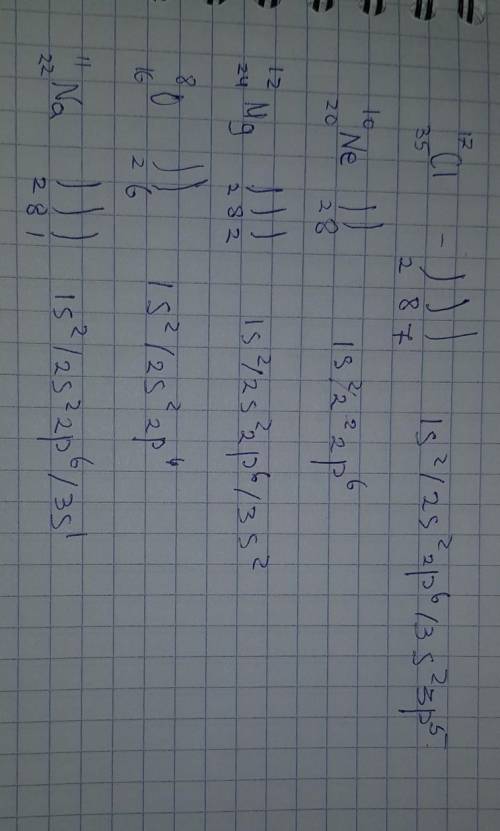 ¹⁷₃₅Cl - ) ) ) 2 8 7 1s²/2s²2p⁶/3s²3p⁵
¹⁰₂₀Ne ) ) 2 8 1s²/2²2p⁶
¹²₂₄Mg ) ) ) 2 8 2 1s²/2s²2p⁶/3s²
⁸₁₆O ) ) 2 6 1s²/2s²2p⁴
¹¹₂₂Na ) ) ) 2 8 1 1s²/2s²2p⁶/3s¹